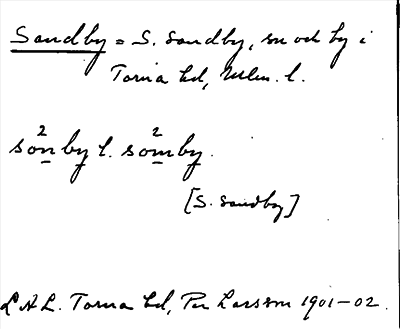 Sandby = S. Sandby, sn och by i
Torna hd, Mlm. l.
so²n̲by l. so²m̲by.
[S. Sandby]
LAL. Torna hd, Per Larsson 1901–02.